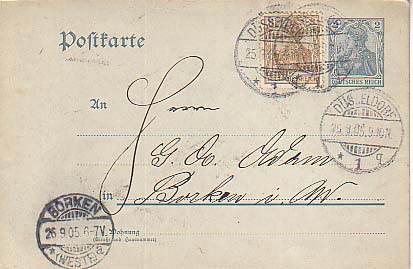 Postkarte
DÜSSELDORF
25
* 1
2
DEUTSCHES REICH
An
Herrn
DÜSSELDORF
25.9.05.5-10N
* 1 q
G. Ad. Adam
in Borken i. W.
BORKEN
26.9.05 6-7V.
* (WESTF.) a
Wohnung
(Straße und Hausnummer)